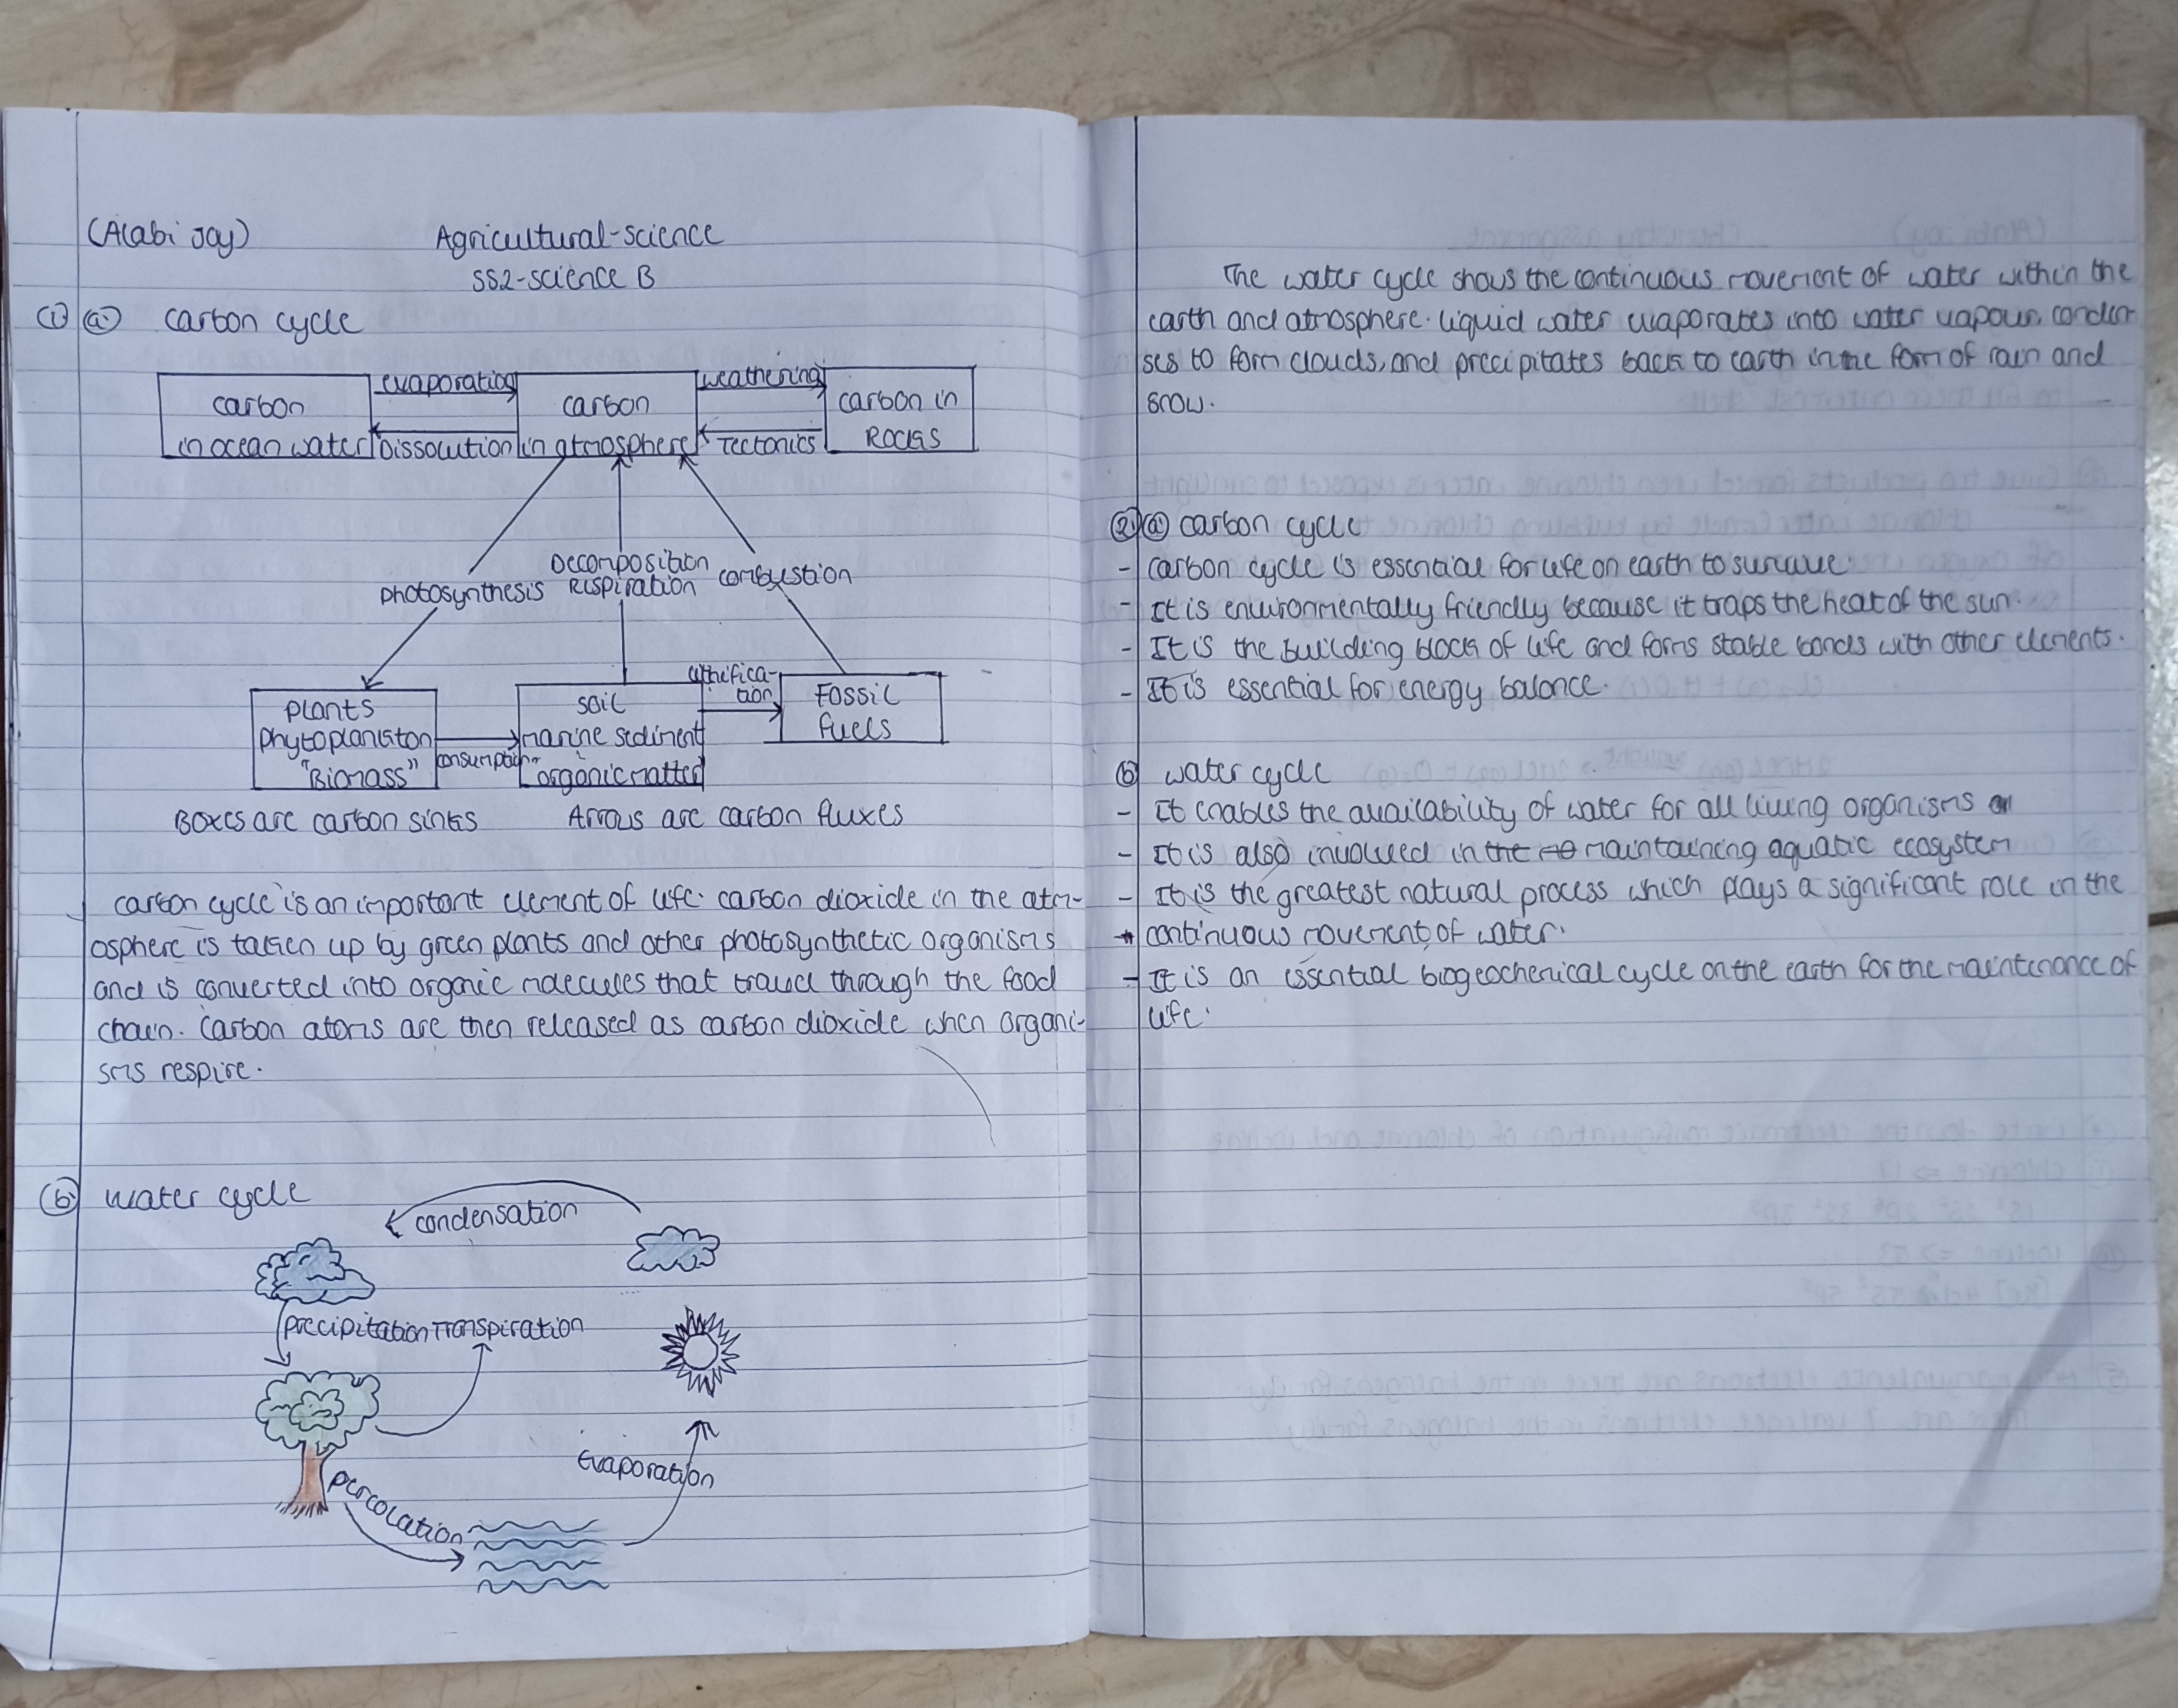 (Alabi Joy) Agricultural-science
SS2-science B
(1) (a) carbon cycle
evaporation weathering
carbon carbon carbon in
in ocean water Dissolution in atmosphere Tectonics Rocks
Decomposition
photosynthesis Respiration combustion
lithifica-
tion
plants soil Fossil
phytoplankton marine sediment fuels
"Biomass" consumption organic matter
Boxes are carbon sinks Arrows are carbon fluxes
carbon cycle is an important element of life. carbon dioxide in the atm-
osphere is taken up by green plants and other photosynthetic organisms
and is converted into organic molecules that travel through the food
chain. Carbon atoms are then released as carbon dioxide when organi-
sms respire.
(b) water cycle
condensation
precipitation Transpiration
Evaporation
percolation
The water cycle shows the continuous movement of water within the
earth and atmosphere. liquid water evaporates into water vapour, conden
ses to form clouds, and precipitates back to earth in the form of rain and
snow.
(2) (a) carbon cycle
- carbon cycle is essential for life on earth to survive.
- It is environmentally friendly because it traps the heat of the sun.
- It is the building block of life and forms stable bonds with other elements.
- It is essential for energy balance.
(b) water cycle
- It enables the availability of water for all living organisms
- It is also involved in the maintaining aquatic ecosystem
- It is the greatest natural process which plays a significant role in the
continuous movement of water.
- It is an essential biogeochemical cycle on the earth for the maintenance of
life.